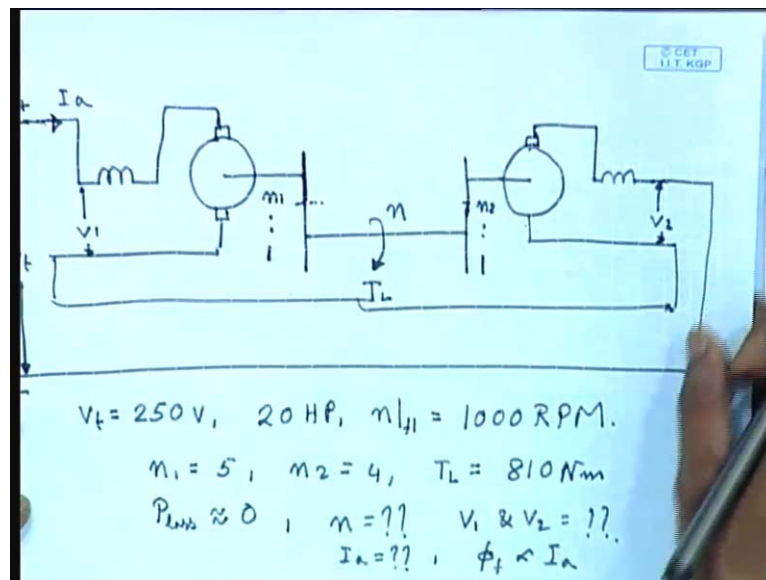 © CET
I.I.T. KGP
Ia
n1
n2
V1
n
V2
1
1
TL
+
-
Vt = 250 V, 20 HP, n|fl = 1000 RPM.
n1 = 5, n2 = 4, TL = 810 Nm
Ploss ≈ 0, n = ?? V1 & V2 = ??.
Ia = ??, ϕf ∝ Ia